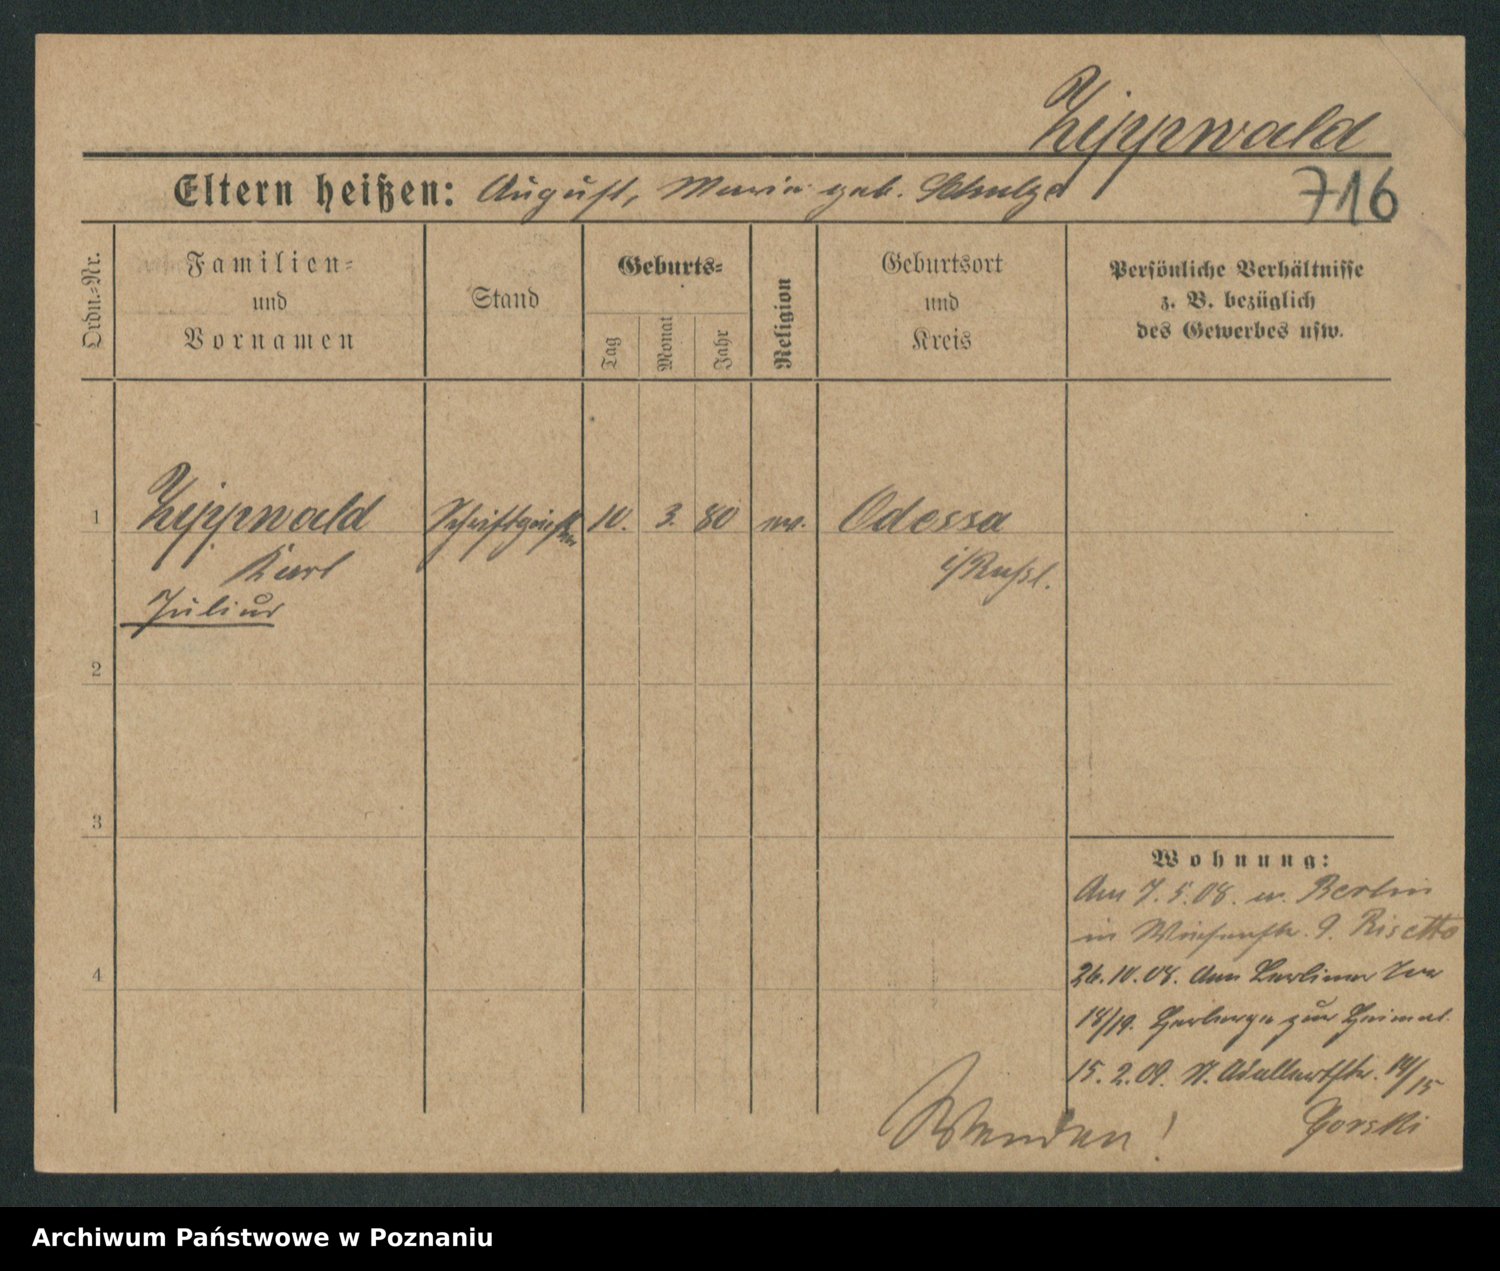 Zippwald
Eltern heißen: August, Maria geb. Schulze
716
Ordn.-Nr.
Familien-
und
Vornamen
Stand
Geburts-
Tag
Monat
Jahr
Religion
Geburtsort
und
Kreis
Persönliche Verhältnisse
z. B. bezüglich
des Gewerbes usw.
1
Zippwald
Karl
Julius
Schriftgießer
10. 3. 80
ev.
Odessa
i/Rußl.
2
3
4
Wohnung:
Am 7. 5. 08. n. Berlin
in 9. Risetto
26. 10. 08. Am Berliner Tor
18/19. Herberge zur Heimat.
15. 2. 09. St. Adalbertstr. 14/15
Gorski
Wenden!
Archiwum Państwowe w Poznaniu